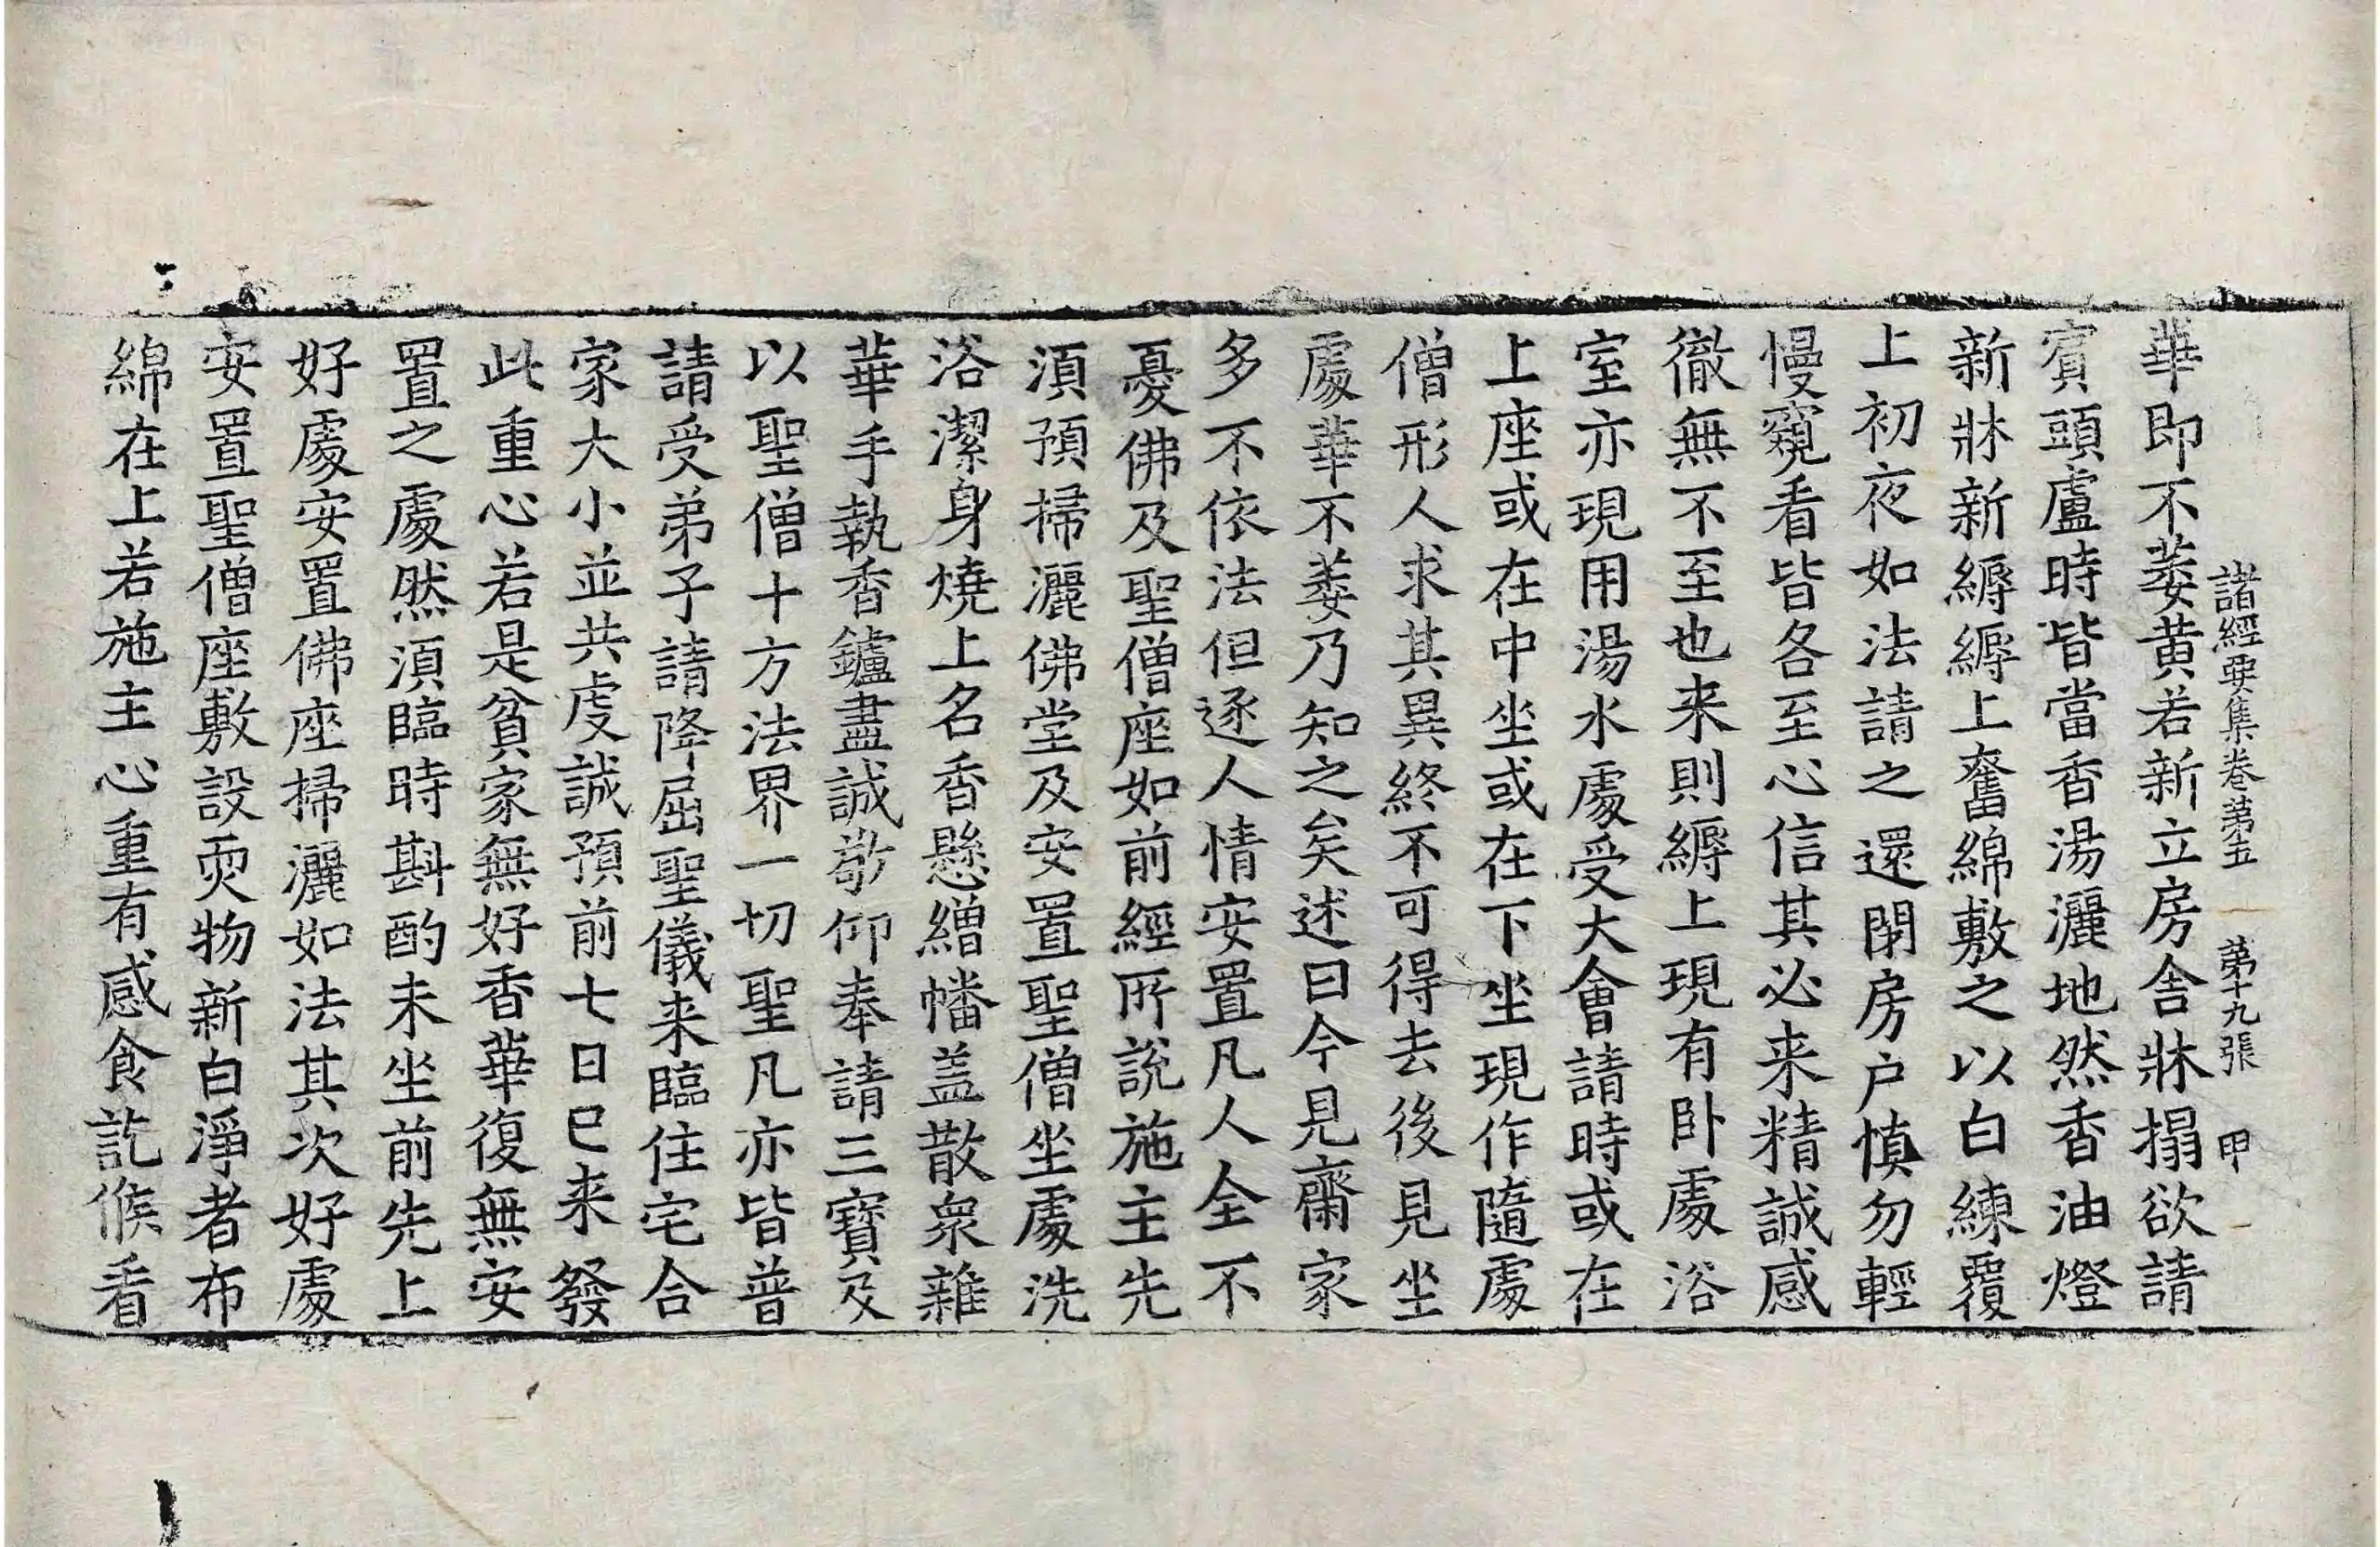 諸經要集卷第五 第十九張 甲
華即不萎黄若新立房舍牀搨欲請
賓頭盧時皆當香湯灑地然香油燈
新牀新縟縟上奮綿敷之以白練覆
上初夜如法請之還閉房户慎勿輕
慢窺看皆各至心信其必来精誠感
徹無不至也来則縟上現有卧處浴
室亦現用湯水處受大會請時或在
上座或在中坐或在下坐現作隨處
僧形人求其異終不可得去後見坐
處華不萎乃知之矣述曰今見齋家
多不依法但逐人情安置凡人全不
憂佛及聖僧座如前經所說施主先
湏預掃灑佛堂及安置聖僧坐處洗
浴潔身燒上名香懸繒幡盖散衆雜
華手執香鑪盡誠敬仰奉請三寶及
以聖僧十方法界一切聖凡亦皆普
請受弟子請降屈聖儀来臨住宅合
家大小並共虔誠預前七日已来發
此重心若是貧家無好香華復無安
置之處然湏臨時斟酌未坐前先上
好處安置佛座掃灑如法其次好處
安置聖僧座敷設耎物新白淨者布
綿在上若施主心重有感食訖候看